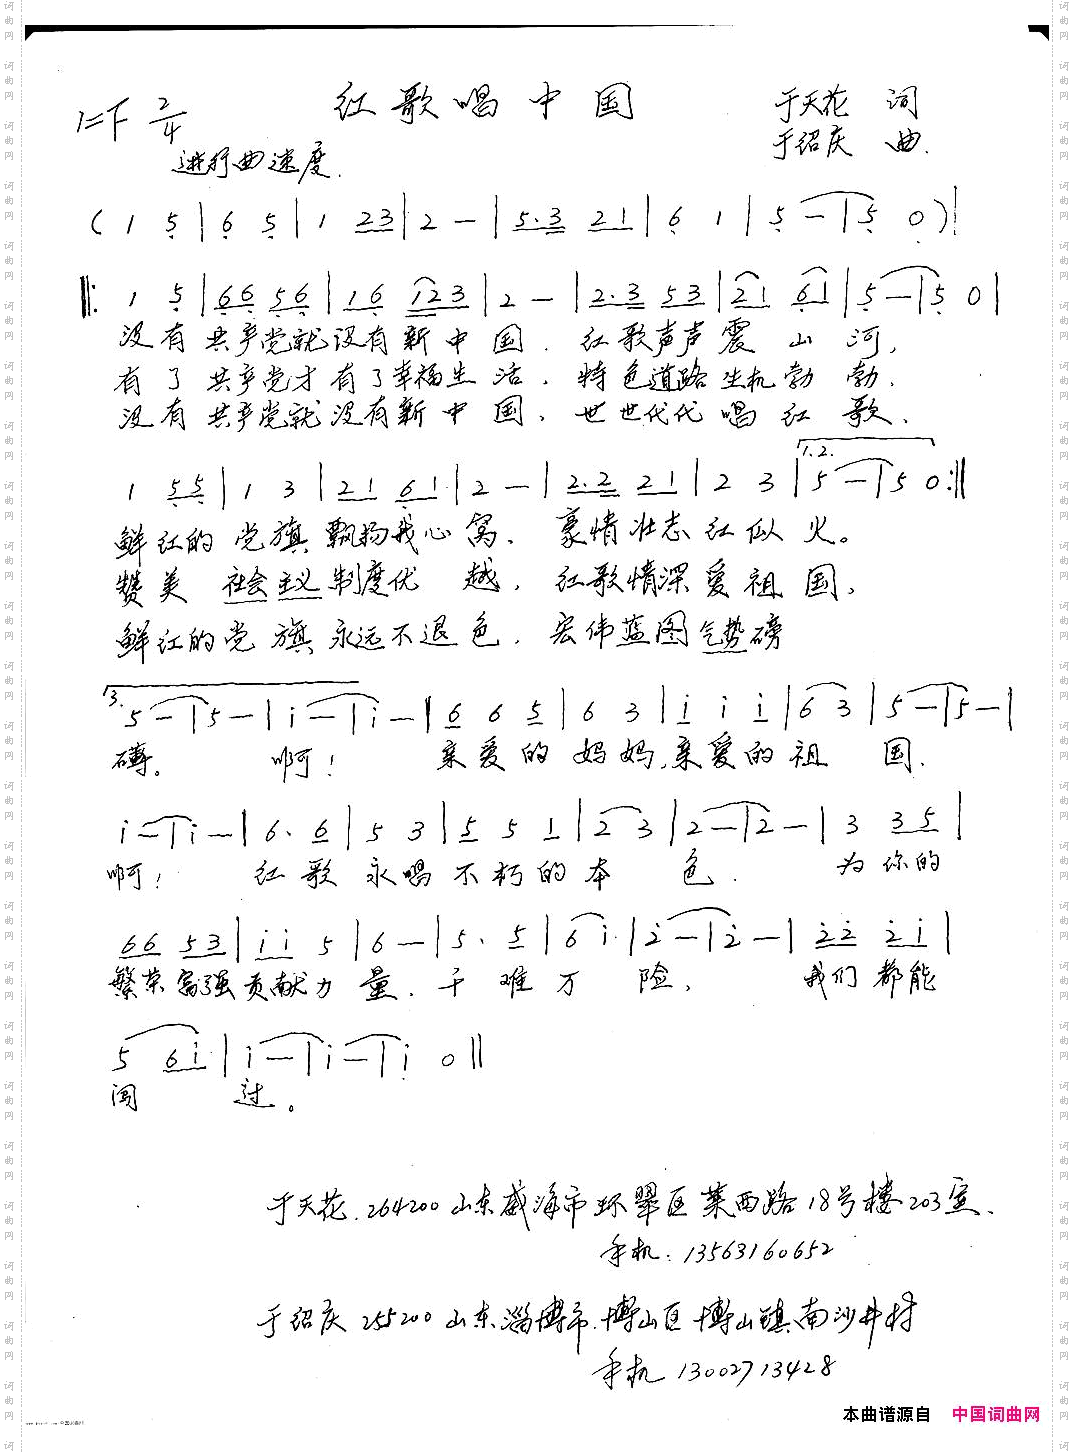 红歌唱中国
1=F 2/4
于天花 词
于绍庆 曲
进行曲速度.
( 1 5 | 6 5 | 1 23 | 2 — | 5.3 21 | 6 1 | 5 — | 5 0 ) |
‖: 1 5 | 66 56 | 16 123 | 2 — | 2.3 53 | 21 61 | 5 — | 5 0 |
没有 共产党就没有新中国. 红歌声声震山河,
有了共产党才有了幸福生活. 特色道路生机勃勃.
没有共产党就没有新中国. 世世代代唱红歌.
1.2.
1 55 | 1 3 | 21 61 | 2 — | 2.2 21 | 2 3 | 5 — | 5 0 :‖
鲜红的党旗飘扬我心窝. 豪情壮志红似火。
赞美社会主义制度优越. 红歌情深爱祖国.
鲜红的党旗永远不退色. 宏伟蓝图气势磅
3.
5 — | 5 — | i — | i — | 6 6 5 | 6 3 | i i i | 6 3 | 5 — | 5 — |
礴。 啊! 亲爱的妈妈,亲爱的祖国.
i — | i — | 6. 6 | 5 3 | 5 5 1 | 2 3 | 2 — | 2 — | 3 35 |
啊! 红歌永唱不朽的本色. 为你的
66 53 | ii 5 | 6 — | 5. 5 | 6 i | 2 — | 2 — | 22 2i |
繁荣富强贡献力量. 千难万险, 我们都能
5 6i | i — | i — | i 0 ‖
闯过。
于天花. 264200 山东威海市环翠区莱西路18号楼203室.
手机: 13563160652
于绍庆 255200 山东淄博市.博山区博山镇南沙井村
手机 13002713428
本曲谱源自 中国词曲网